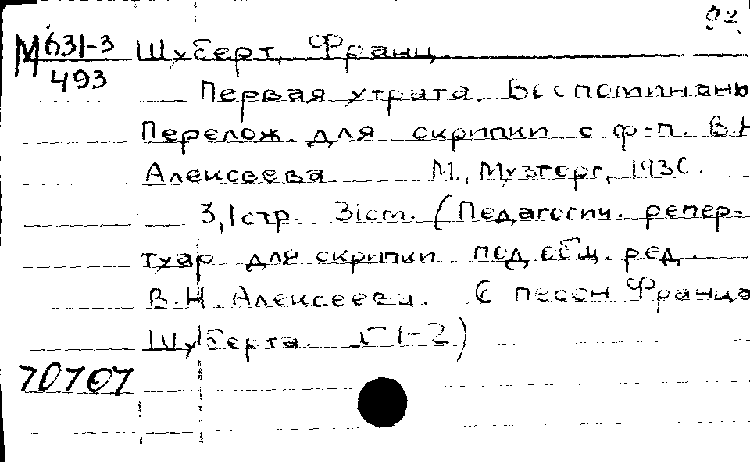 92
М 631-3 Шуберт, Франц.
493
Первая утрата. Воспоминань
Перелож. для скрипки с ф-п. В.Н
Алексеева М., Музторг, 1930.
3,1 стр. 3 icm. (Педагогич. репер-
туар для скрипки под общ. ред.
В.Н. Алексеева. 6 песен Франца
Шуберта 1-2)
70707